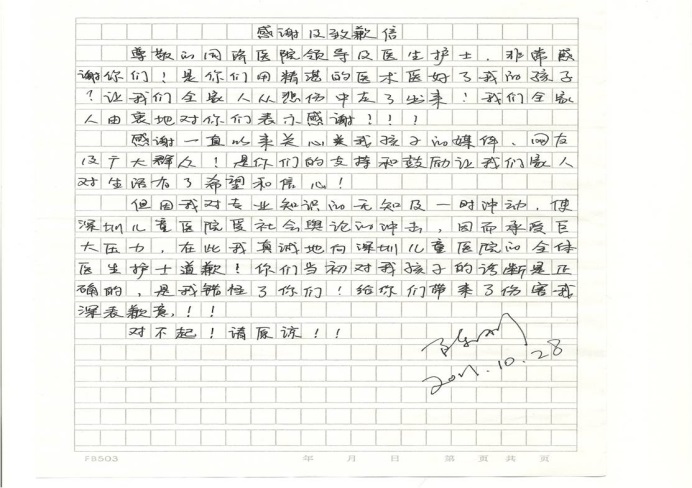 感谢及致歉信
尊敬的同济医院领导及医生护士，非常感
谢你们！是你们用精湛的医术医好了我的孩子
！让我们全家人从悲伤中走了出来！我们全家
人由衷地对你们表示感谢！！！
感谢一直以来关心关爱我孩子的媒体、网友
及广大群众！是你们的支持和鼓励让我们家人
对生活有了希望和信心！
但因我对专业知识的无知及一时冲动，使
深圳儿童医院医社会舆论的冲击，因而承受巨
大压力，在此我真诚地向深圳儿童医院的全体
医生护士道歉！你们当初对我孩子的诊断是正
确的，是我错怪了你们！给你们带来了伤害我
深表歉意！！！
对不起！请原谅！！
2011.10.28
F8503 年 月 日 第 页 共 页